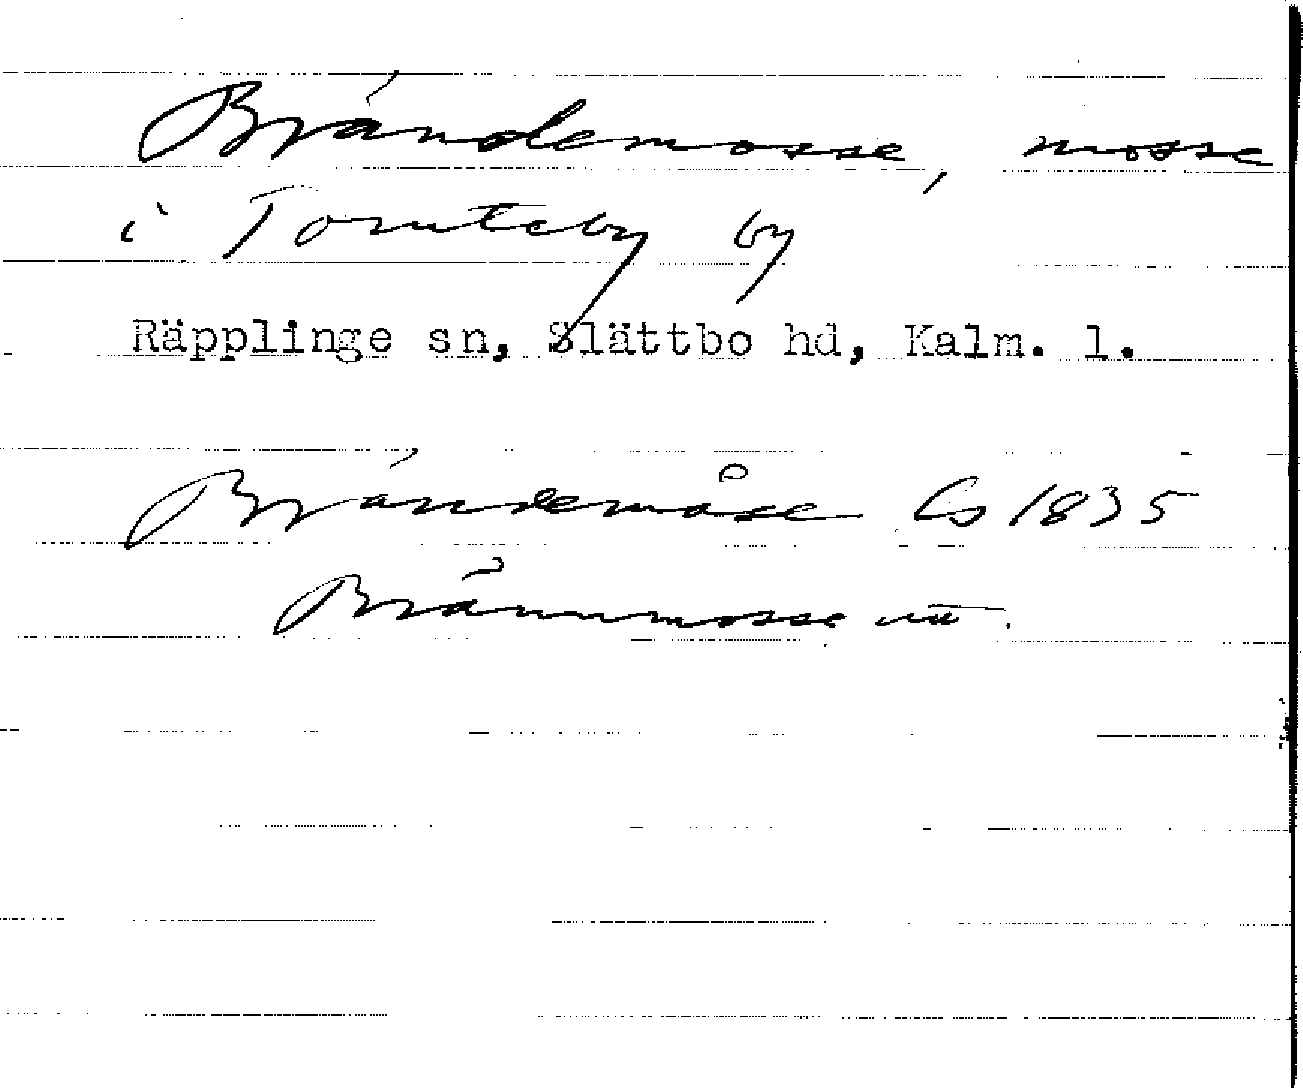 Brändemosse, mosse
i Tomteby by
Räpplinge sn, Slättbo hd, Kalm. l.
Brändemåse Cs 1835
Brännmosse